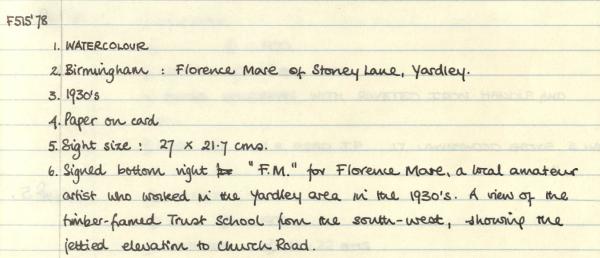 F515'78
1. WATERCOLOUR
2. Birmingham : Florence Mare of Stoney Lane, Yardley.
3. 1930's
4. Paper on card
5. Sight size : 27 x 21.7 cms.
6. Signed bottom right "F.M." for Florence Mare, a local amateur
artist who worked in the Yardley area in the 1930's. A view of the
timber-framed Trust School from the south-west, showing the
jettied elevation to Church Road.